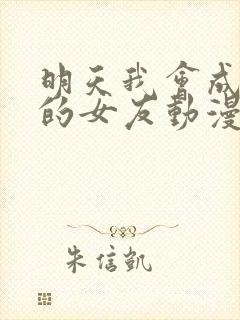 明天我會成
的女友動漫
朱信凱